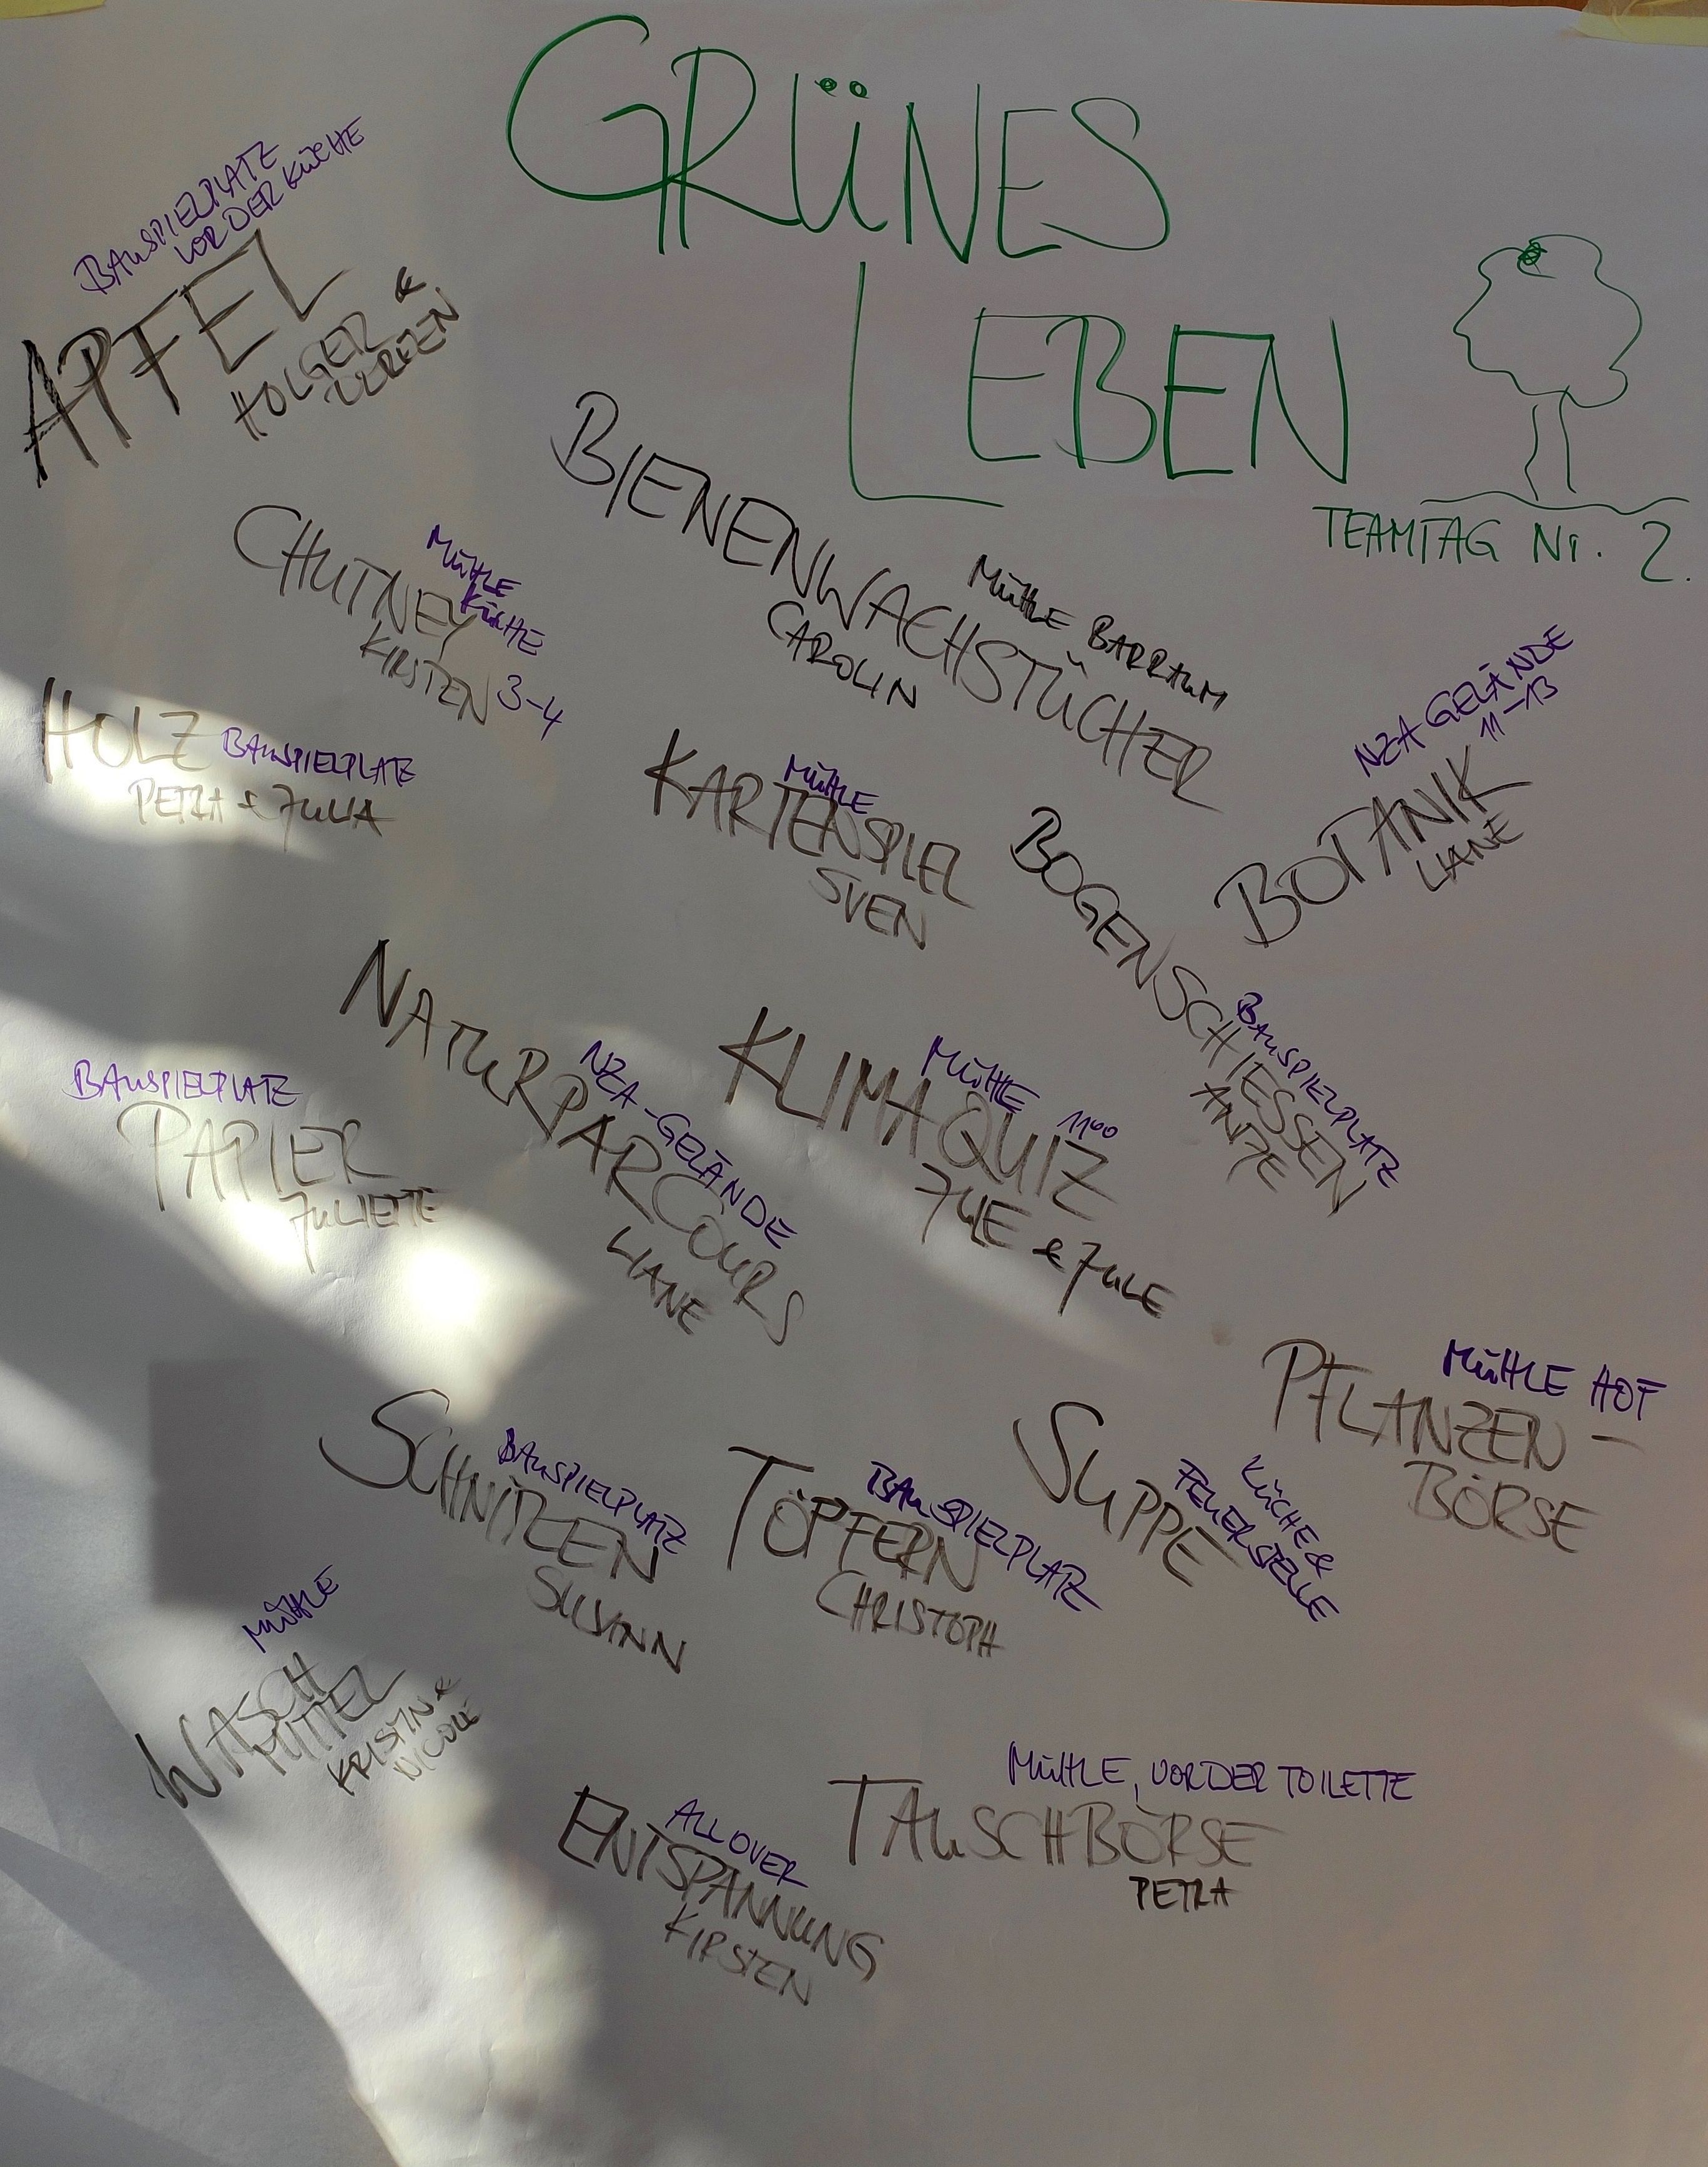 GRÜNES
LEBEN
TEAMTAG Nr. 2.
BAUSPIELPLATZ
VOR DER KÜCHE
APFEL
HOLGER &
BIENENWACHSTÜCHER
MÜHLE BARRAUM
CAROLIN
CHUTNEY
MÜHLE
KÜCHE
KIRSTEN 3-4
HOLZ BAUSPIELPLATZ
PETRA & JULIA
MÜHLE
KARTENSPIEL
SVEN
NZA GELÄNDE
11-13
BOTANIK
LIANE
BOGENSCHIESSEN
BAUSPIELPLATZ
ANTJE
NATURPARCOURS
NZA-GELÄNDE
LIANE
KLIMAQUIZ
MÜHLE 11⁰⁰
JULE & JULE
BAUSPIELPLATZ
PAPIER
JULIETTE
MÜHLE HOF
PFLANZEN-
BÖRSE
SCHNITZEN
BAUSPIELPLATZ
SUSANN
TÖPFERN
BAUSPIELPLATZ
CHRISTOPH
SUPPE
KÜCHE &
FEUERSTELLE
MÜHLE
WASCH
MITTEL
KRISTIN &
NICOLE
MÜHLE, VOR DER TOILETTE
TAUSCHBÖRSE
PETRA
ALL OVER
ENTSPANNUNG
KIRSTEN